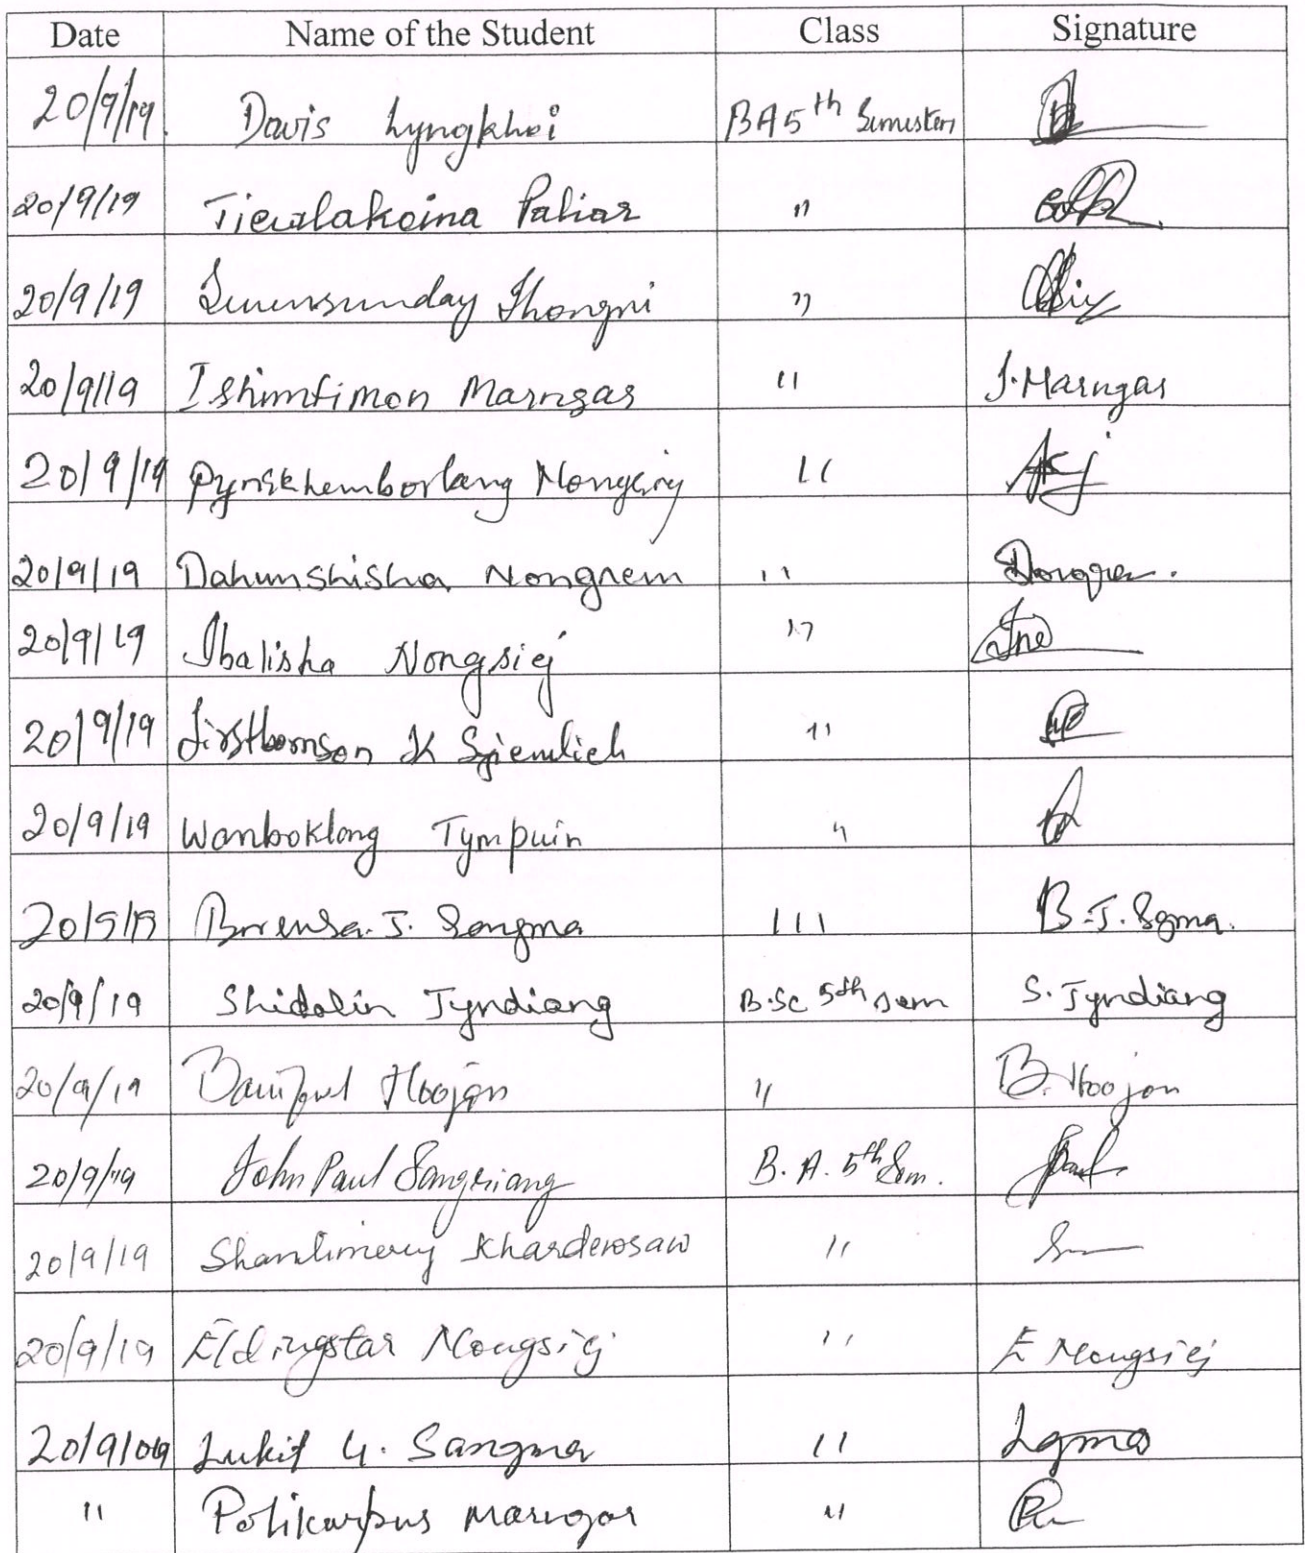 Date Name of the Student Class Signature
20/9/19. Davis Lyngkhoi BA 5th Semister
20/9/19 Tiewlakoina Pahiar "
20/9/19 Thongni "
20/9/19 Ishimtimon Marngar "  J. Marngar
20/9/19 Pynskhemborlang Nongsiej "
20/9/19 Dahunshisha Nongrem "
20/9/19 Ibalisha Nongsiej "
20/9/19 Firstbornson K Syiemlieh "
20/9/19 Wanboklang Tympuin "
20/9/19 J. Sangma 111 B.J. Sgma.
20/9/19 Shidalin Tyndiang B.Sc 5th sem S. Tyndiang
20/9/19 Hoojon " B. Hoojon
20/9/19 John Paul Sangriang B.A. 5th Sem.
20/9/19 Shanlimercy Khardewsaw "
20/9/19 Eldingstar Nongsiej " E Nongsiej
20/9/09 Lukit G. Sangma " Lgma
" Polikarpus Marngar "